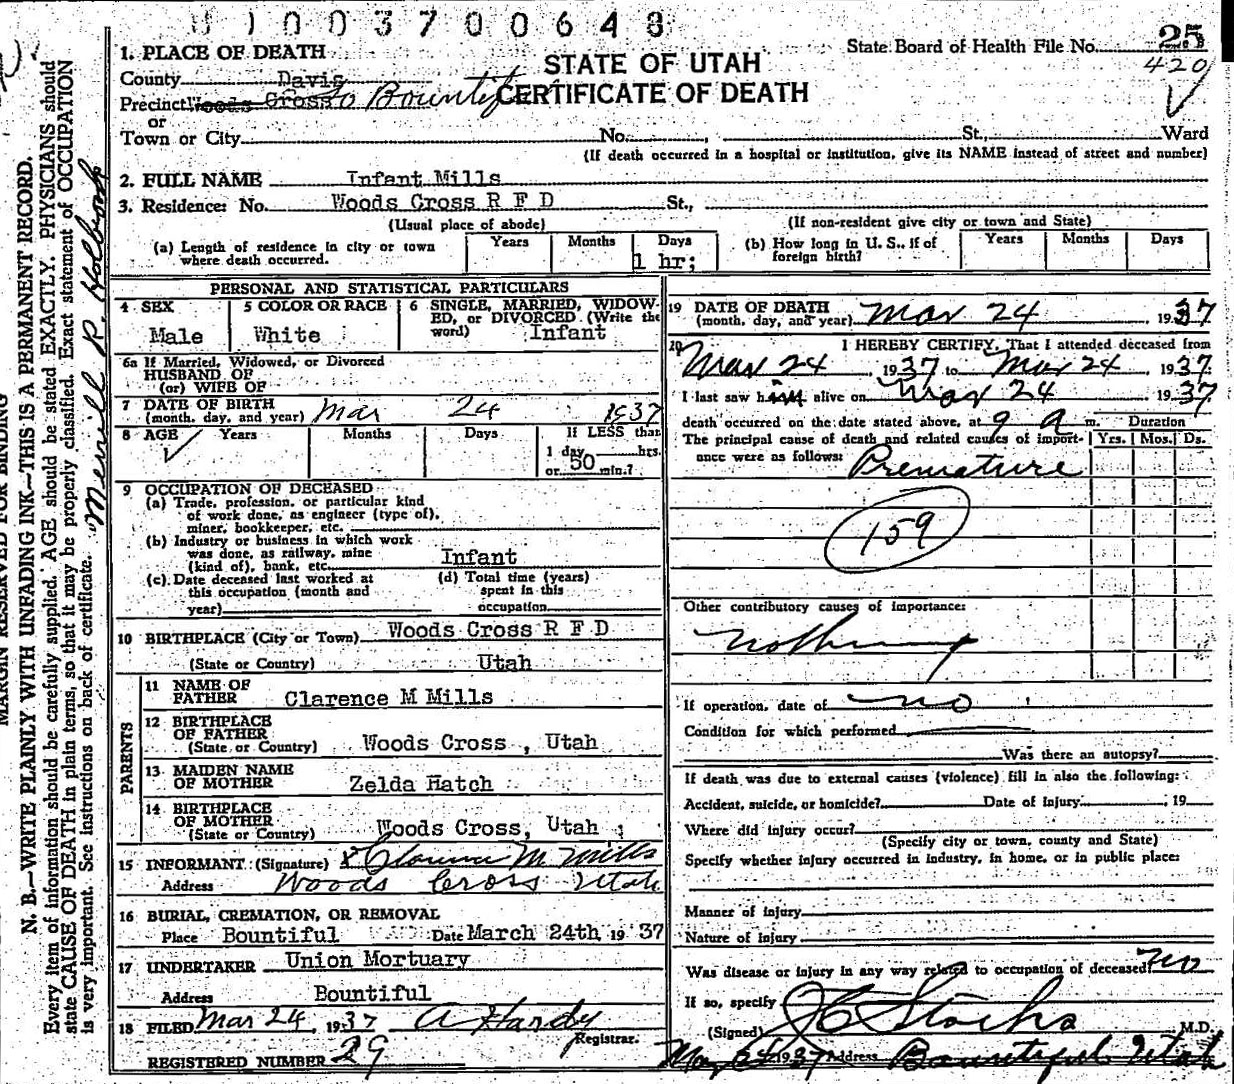 1003700648
State Board of Health File No. 25
420
STATE OF UTAH
CERTIFICATE OF DEATH
1. PLACE OF DEATH
County Davis
Precinct Woods Cross Bountiful
or
Town or City No. , St., Ward
(If death occurred in a hospital or institution, give its NAME instead of street and number)
2. FULL NAME Infant Mills
3. Residence: No. Woods Cross R F D St.,
(Usual place of abode) (If non-resident give city or town and State)
(a) Length of residence in city or town where death occurred. Years Months Days 1 hr;
(b) How long in U. S., if of foreign birth? Years Months Days
PERSONAL AND STATISTICAL PARTICULARS
4 SEX Male
5 COLOR OR RACE White
6 SINGLE, MARRIED, WIDOWED, or DIVORCED. (Write the word) Infant
6a If Married, Widowed, or Divorced
HUSBAND OF
(or) WIFE OF
7 DATE OF BIRTH
(month, day, and year) Mar 24 1937
8 AGE Years Months Days If LESS than
1 day hrs.
or 50 min.?
9 OCCUPATION OF DECEASED
(a) Trade, profession, or particular kind
of work done, as engineer (type of),
miner, bookkeeper, etc.
(b) Industry or business in which work
was done, as railway, mine
(kind of), bank, etc. Infant
(c) Date deceased last worked at
this occupation (month and
year)
(d) Total time (years)
spent in this
occupation
10 BIRTHPLACE (City or Town) Woods Cross R F D
(State or Country) Utah
PARENTS
11 NAME OF
FATHER Clarence M Mills
12 BIRTHPLACE
OF FATHER
(State or Country) Woods Cross , Utah
13 MAIDEN NAME
OF MOTHER Zelda Hatch
14 BIRTHPLACE
OF MOTHER
(State or Country) Woods Cross, Utah ;
15 INFORMANT (Signature) x Clarence M Mills
Address Woods Cross Utah
16 BURIAL, CREMATION, OR REMOVAL
Place Bountiful Date March 24th, 19 37
17 UNDERTAKER Union Mortuary
Address Bountiful
18 FILED Mar 24, 1937 A Hardy
Registrar.
REGISTERED NUMBER 29
19 DATE OF DEATH
(month, day, and year) Mar 24, 1937
20 I HEREBY CERTIFY, That I attended deceased from
Mar 24, 1937 to Mar 24, 1937.
I last saw him alive on Mar 24, 1937
death occurred on the date stated above, at 9 a m. Duration
The principal cause of death and related causes of importance were as follows: Yrs. Mos. Ds.
Premature
159
Other contributory causes of importance:
Nothing
If operation, date of no
Condition for which performed
Was there an autopsy?
If death was due to external causes (violence) fill in also the following:
Accident, suicide, or homicide? Date of Injury , 19
Where did injury occur?
(Specify city or town, county and State)
Specify whether injury occurred in industry, in home, or in public place:
Manner of injury
Nature of Injury
Was disease or injury in any way related to occupation of deceased? no
If so, specify
(Signed) Stocks M.D.
1937 Address Bountiful Utah
MARGIN RESERVED FOR BINDING
N. B.—WRITE PLAINLY WITH UNFADING INK—THIS IS A PERMANENT RECORD.
Every item of information should be carefully supplied. AGE should be stated EXACTLY. PHYSICIANS should
state CAUSE OF DEATH in plain terms, so that it may be properly classified. Exact statement of OCCUPATION
is very important. See instructions on back of certificate.
Merrill R. Holbrook